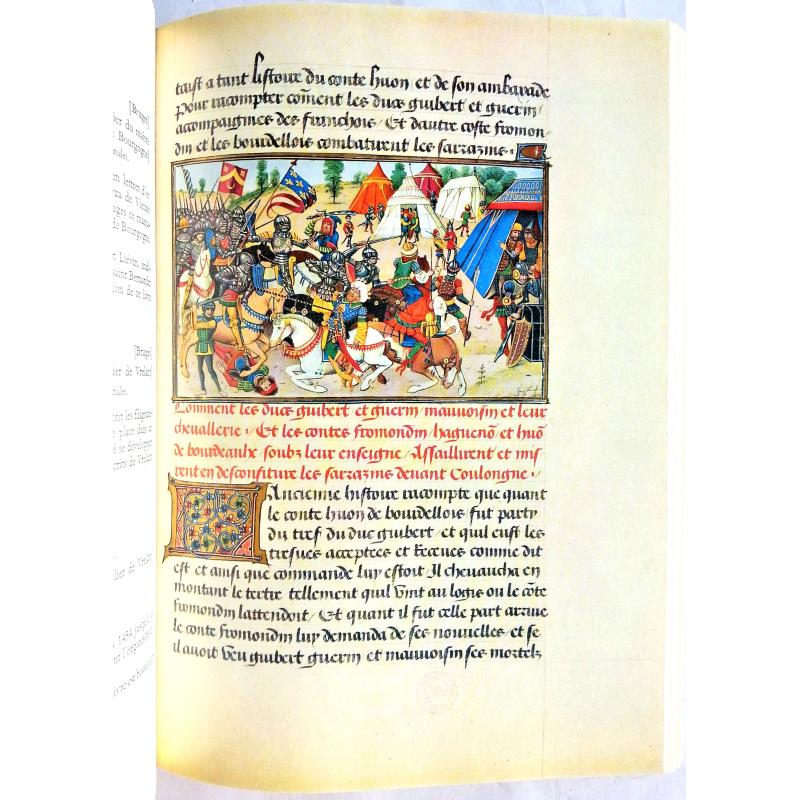 [Bruges]
taist a tant listoire du conte huon et de son ambaxade
Pour racompter cõment les ducs guibert et guerin/
accompaignies des franchois / Et dautre coste fromon-
din et les bourdellois combatirent les sarrazins ·
Comment les ducs guibert et guerin / mauvoisin et leur
chevallerie · Et les contes fromondin haguenõ et huõ
de bourdeaulx soubz leur enseigne / Assaillirent et mis
rent en desconfiture les sarrazins devant Coulongne ·
Lancienne histoire racompte que quant
le conte huon de bourdellois fut party
du tref du duc guibert / et quil eust les
tresves acceptees et Receues comme dit
est et ainsi que commande luy estoit Il chevaucha en
montant le tertre tellement quil Vint au logis ou le cõte
fromondin lattendoit / Et quant il fut celle part arrive
le conte fromondin luy demanda de ses nouvelles / et se
il avoit Veu guibert guerin et mauvoisin ses mortelz
de Bourgogne]
de Bourgogne.
[Bruges]